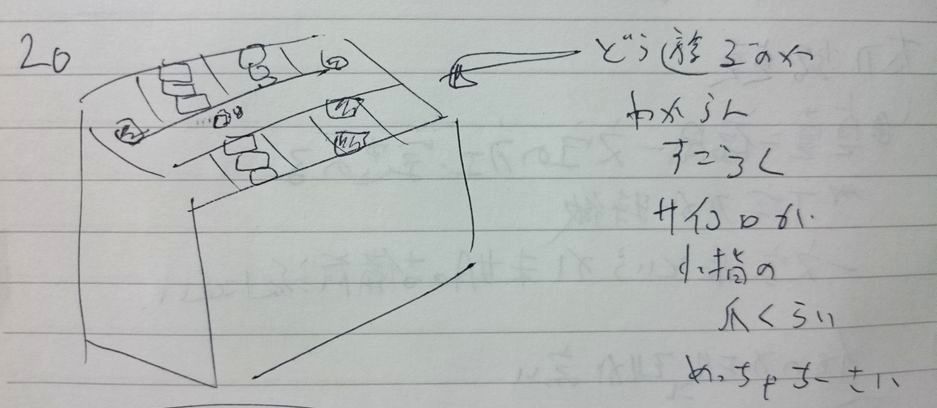 20
どう遊ぶのか
わからん
すごろく
サイコロが
小指の
爪くらい
めっちゃちーさい